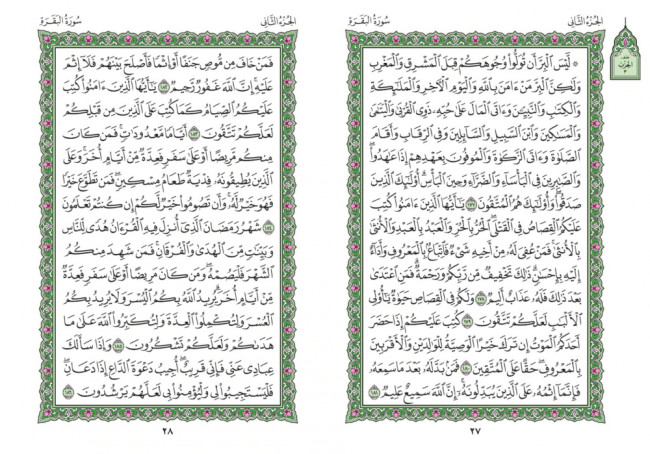 الجزء الثاني
سورة البقرة
۞ لَّيْسَ ٱلْبِرَّ أَن تُوَلُّوا۟ وُجُوهَكُمْ قِبَلَ ٱلْمَشْرِقِ وَٱلْمَغْرِبِ
وَلَٰكِنَّ ٱلْبِرَّ مَنْ ءَامَنَ بِٱللَّهِ وَٱلْيَوْمِ ٱلْـَٔاخِرِ وَٱلْمَلَٰٓئِكَةِ
وَٱلْكِتَٰبِ وَٱلنَّبِيِّـۧنَ وَءَاتَى ٱلْمَالَ عَلَىٰ حُبِّهِۦ ذَوِى ٱلْقُرْبَىٰ وَٱلْيَتَٰمَىٰ
وَٱلْمَسَٰكِينَ وَٱبْنَ ٱلسَّبِيلِ وَٱلسَّآئِلِينَ وَفِى ٱلرِّقَابِ وَأَقَامَ
ٱلصَّلَوٰةَ وَءَاتَى ٱلزَّكَوٰةَ وَٱلْمُوفُونَ بِعَهْدِهِمْ إِذَا عَٰهَدُوا۟ۖ
وَٱلصَّٰبِرِينَ فِى ٱلْبَأْسَآءِ وَٱلضَّرَّآءِ وَحِينَ ٱلْبَأْسِۗ أُو۟لَٰٓئِكَ ٱلَّذِينَ
صَدَقُوا۟ۖ وَأُو۟لَٰٓئِكَ هُمُ ٱلْمُتَّقُونَ ١٧٧ يَٰٓأَيُّهَا ٱلَّذِينَ ءَامَنُوا۟ كُتِبَ
عَلَيْكُمُ ٱلْقِصَاصُ فِى ٱلْقَتْلَىۖ ٱلْحُرُّ بِٱلْحُرِّ وَٱلْعَبْدُ بِٱلْعَبْدِ وَٱلْأُنثَىٰ
بِٱلْأُنثَىٰۚ فَمَنْ عُفِىَ لَهُۥ مِنْ أَخِيهِ شَىْءٌ فَٱتِّبَاعٌۢ بِٱلْمَعْرُوفِ وَأَدَآءٌ
إِلَيْهِ بِإِحْسَٰنٍۗ ذَٰلِكَ تَخْفِيفٌ مِّن رَّبِّكُمْ وَرَحْمَةٌۗ فَمَنِ ٱعْتَدَىٰ
بَعْدَ ذَٰلِكَ فَلَهُۥ عَذَابٌ أَلِيمٌ ١٧٨ وَلَكُمْ فِى ٱلْقِصَاصِ حَيَوٰةٌ يَٰٓأُو۟لِى
ٱلْأَلْبَٰبِ لَعَلَّكُمْ تَتَّقُونَ ١٧٩ كُتِبَ عَلَيْكُمْ إِذَا حَضَرَ
أَحَدَكُمُ ٱلْمَوْتُ إِن تَرَكَ خَيْرًا ٱلْوَصِيَّةُ لِلْوَٰلِدَيْنِ وَٱلْأَقْرَبِينَ
بِٱلْمَعْرُوفِۖ حَقًّا عَلَى ٱلْمُتَّقِينَ ١٨٠ فَمَنۢ بَدَّلَهُۥ بَعْدَ مَا سَمِعَهُۥ
فَإِنَّمَآ إِثْمُهُۥ عَلَى ٱلَّذِينَ يُبَدِّلُونَهُۥٓۚ إِنَّ ٱللَّهَ سَمِيعٌ عَلِيمٌ ١٨١
٢٧
الجزء الثاني
سورة البقرة
فَمَنْ خَافَ مِن مُّوصٍ جَنَفًا أَوْ إِثْمًا فَأَصْلَحَ بَيْنَهُمْ فَلَآ إِثْمَ
عَلَيْهِۚ إِنَّ ٱللَّهَ غَفُورٌ رَّحِيمٌ ١٨٢ يَٰٓأَيُّهَا ٱلَّذِينَ ءَامَنُوا۟ كُتِبَ
عَلَيْكُمُ ٱلصِّيَامُ كَمَا كُتِبَ عَلَى ٱلَّذِينَ مِن قَبْلِكُمْ
لَعَلَّكُمْ تَتَّقُونَ ١٨٣ أَيَّامًا مَّعْدُودَٰتٍۚ فَمَن كَانَ
مِنكُم مَّرِيضًا أَوْ عَلَىٰ سَفَرٍ فَعِدَّةٌ مِّنْ أَيَّامٍ أُخَرَۚ وَعَلَى
ٱلَّذِينَ يُطِيقُونَهُۥ فِدْيَةٌ طَعَامُ مِسْكِينٍۖ فَمَن تَطَوَّعَ خَيْرًا
فَهُوَ خَيْرٌ لَّهُۥۚ وَأَن تَصُومُوا۟ خَيْرٌ لَّكُمْۖ إِن كُنتُمْ تَعْلَمُونَ
١٨٤ شَهْرُ رَمَضَانَ ٱلَّذِىٓ أُنزِلَ فِيهِ ٱلْقُرْءَانُ هُدًى لِّلنَّاسِ
وَبَيِّنَٰتٍ مِّنَ ٱلْهُدَىٰ وَٱلْفُرْقَانِۚ فَمَن شَهِدَ مِنكُمُ
ٱلشَّهْرَ فَلْيَصُمْهُۖ وَمَن كَانَ مَرِيضًا أَوْ عَلَىٰ سَفَرٍ فَعِدَّةٌ
مِّنْ أَيَّامٍ أُخَرَۗ يُرِيدُ ٱللَّهُ بِكُمُ ٱلْيُسْرَ وَلَا يُرِيدُ بِكُمُ
ٱلْعُسْرَ وَلِتُكْمِلُوا۟ ٱلْعِدَّةَ وَلِتُكَبِّرُوا۟ ٱللَّهَ عَلَىٰ مَا
هَدَىٰكُمْ وَلَعَلَّكُمْ تَشْكُرُونَ ١٨٥ وَإِذَا سَأَلَكَ
عِبَادِى عَنِّى فَإِنِّى قَرِيبٌۖ أُجِيبُ دَعْوَةَ ٱلدَّاعِ إِذَا دَعَانِۖ
فَلْيَسْتَجِيبُوا۟ لِى وَلْيُؤْمِنُوا۟ بِى لَعَلَّهُمْ يَرْشُدُونَ ١٨٦
٢٨